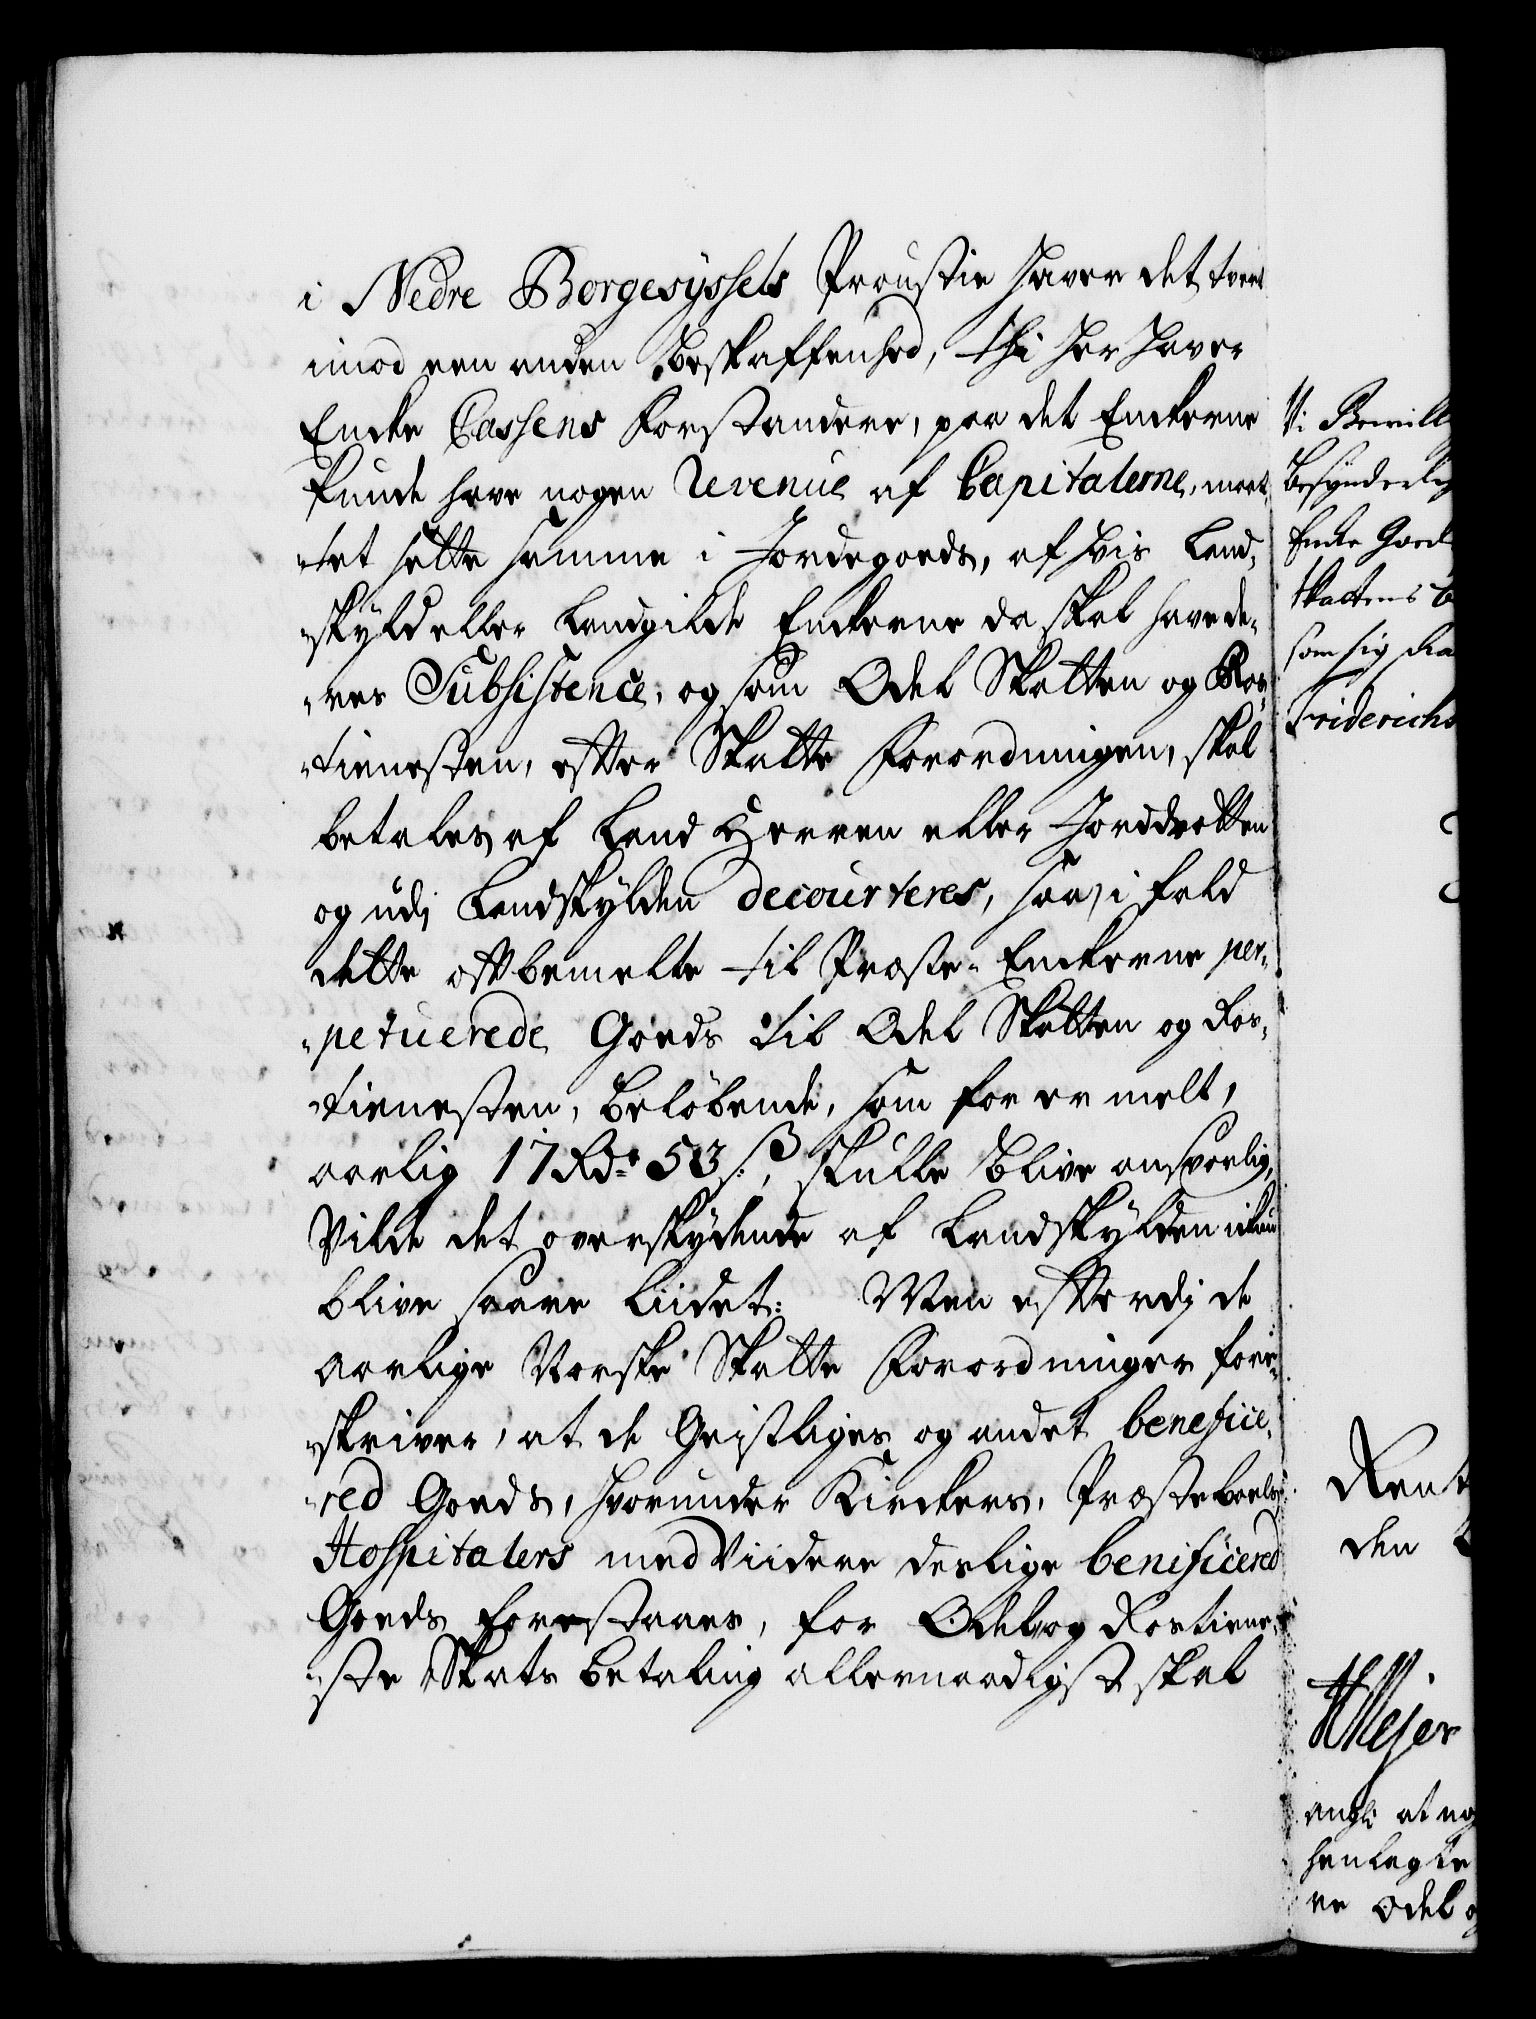 i Nedre Borgesyssels Proustie haver det tvert
imod een anden Beskaffenhed, thi her haver
Encke Cassens Forstandere, paa det Enckerne
kunde have nogen Revenue af Capitalerne, maat-
-tet sette samme i Jordegoeds, af hvis Land-
-skyld eller Landgilde Enckerne da skal have de-
-res Subsistence, og som Odel Skatten og Ros-
-tienesten, efter Skatte Forordningen, skal
betales af Land Herren eller Jorddrotten
og udj Landskylden decourteres, saa, i fald
dette oftbemelte til Præste-Enckerne per-
-petuerede Goeds til Odel Skatten og Ros-
-tienesten, beløbende, som for er melt,
aarlig 17 Rdr 53 ß, skulle blive ansvarlig,
Vilde det overskydende af Landskylden ickun
blive saare liidet: Men efterdj de
aarlige Norske Skatte Forordninger fore-
-skriver, at de Geistliges og andet benefice-
-red Goeds, hvorunder Kirckers, Præsteboels
Hospitalers med Viidere deslige benificered
Goeds forestaaes, for Odel og Rostiene-
-ste Skats betaling allernaadigst skal
Vi Bewill
besynderlig
Encke Goed
skattens b
som sig
Friderichs
Rent
den
Mejer
angl: at
henlagte
re Odel o